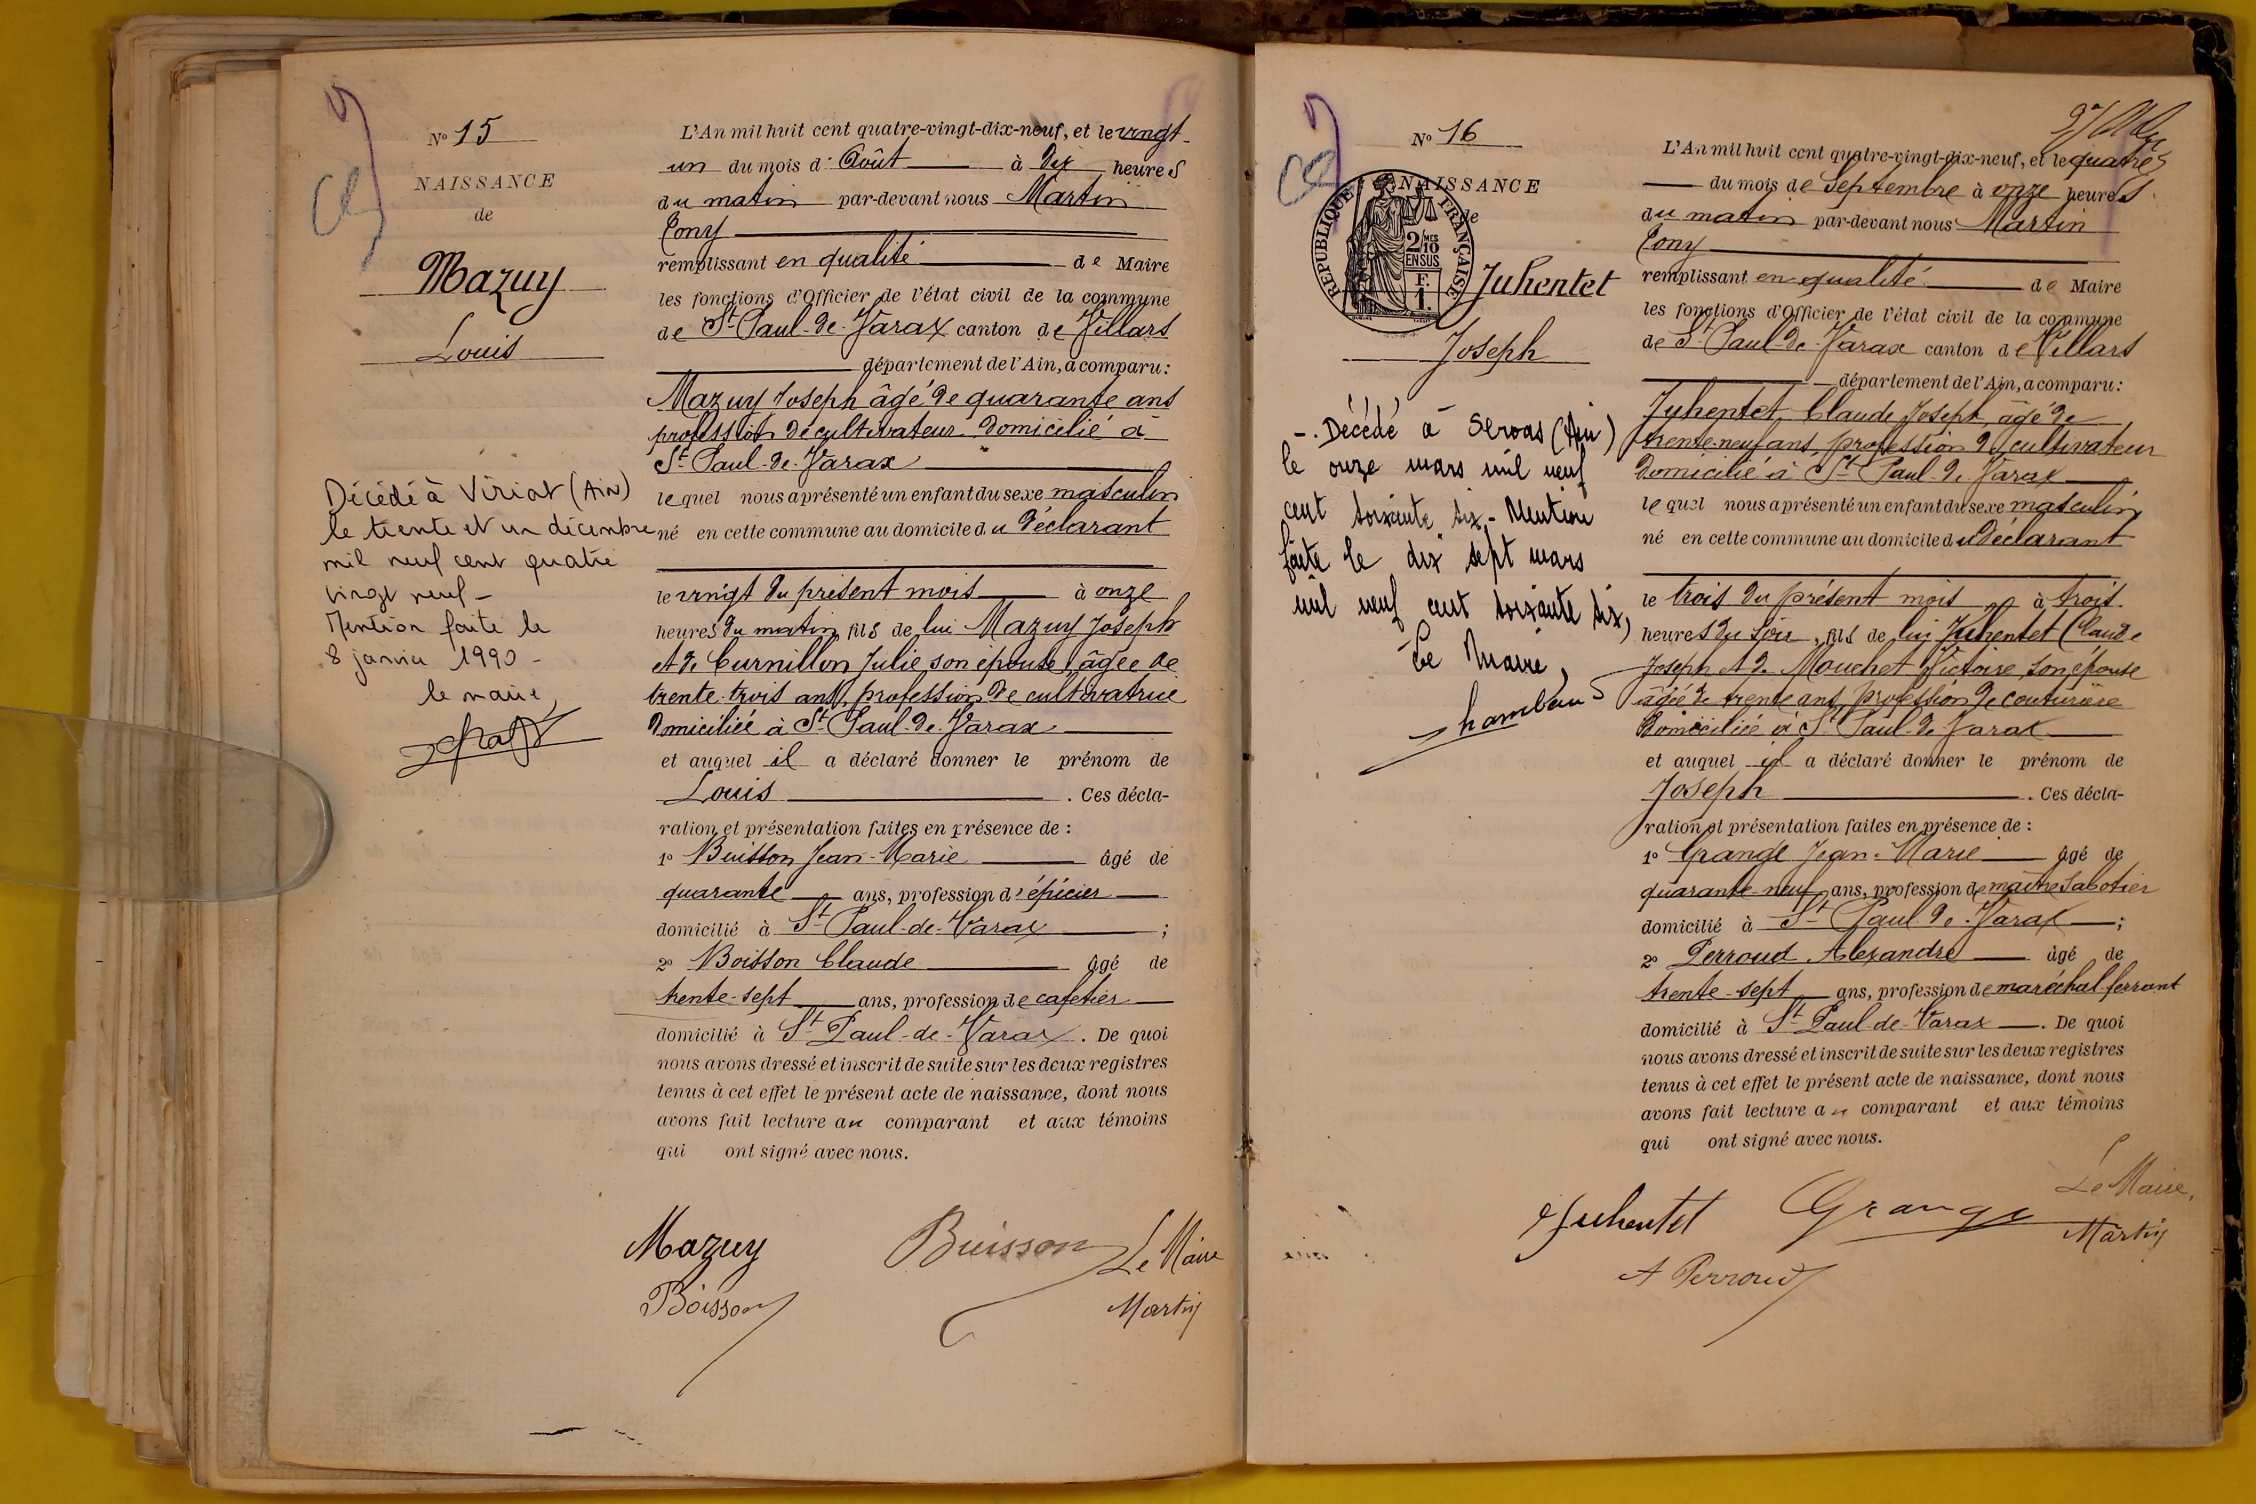 N° 15
NAISSANCE
de
Mazuy
Louis
Décédé à Viriat (Ain)
le trente et un décembre
mil neuf cent quatre
vingt neuf -
Mention faite le
8 janvier 1990 -
le maire,
L'An mil huit cent quatre-vingt-dix-neuf, et le vingt-
un du mois d' Août à dix heures
du matin par-devant nous Martin
Tony
remplissant en qualité de Maire
les fonctions d'Officier de l'état civil de la commune
de St Paul-de-Varax canton de Villars
département de l'Ain, a comparu :
Mazuy Joseph âgé de quarante ans
profession de cultivateur domicilié à
St Paul-de-Varax
lequel nous a présenté un enfant du sexe masculin
né en cette commune au domicile du déclarant
le vingt du présent mois à onze
heures du matin, fils de lui Mazuy Joseph
et de Curnillon Julie son épouse, âgée de
trente-trois ans, profession de cultivatrice
domiciliée à St Paul-de-Varax
et auquel il a déclaré donner le prénom de
Louis . Ces décla-
ration et présentation faites en présence de :
1° Buisson Jean-Marie âgé de
quarante ans, profession d'épicier
domicilié à St Paul-de-Varax ;
2° Boisson Claude âgé de
trente-sept ans, profession de cafetier
domicilié à St Paul-de-Varax . De quoi
nous avons dressé et inscrit de suite sur les deux registres
tenus à cet effet le présent acte de naissance, dont nous
avons fait lecture au comparant et aux témoins
qui ont signé avec nous.
Mazuy Buisson Le Maire
Boisson Martin
N° 16
NAISSANCE
de
RÉPUBLIQUE FRANÇAISE
2/10 MES
EN SUS
F.
1
Juhentet
Joseph
-. Décédé à Servas (Ain)
le onze mars mil neuf
cent soixante six - Mention
faite le dix sept mars
mil neuf cent soixante six,
Le Maire,
L'An mil huit cent quatre-vingt-dix-neuf, et le quatre
du mois de Septembre à onze heures
du matin par-devant nous Martin
Tony
remplissant en qualité de Maire
les fonctions d'Officier de l'état civil de la commune
de St Paul-de-Varax canton de Villars
département de l'Ain, a comparu :
Juhentet Claude Joseph, âgé de
trente-neuf ans, profession de cultivateur
domicilié à St Paul-de-Varax
lequel nous a présenté un enfant du sexe masculin
né en cette commune au domicile du déclarant
le trois du présent mois à trois
heures du soir, fils de lui Juhentet Claude
Joseph et de Mouchet Victoire, son épouse
âgée de trente ans, profession de couturière
domiciliée à St Paul-de-Varax
et auquel il a déclaré donner le prénom de
Joseph . Ces décla-
ration et présentation faites en présence de :
1° Grange Jean-Marie âgé de
quarante-neuf ans, profession de maître sabotier
domicilié à St Paul-de-Varax ;
2° Perroud Alexandre âgé de
trente-sept ans, profession de maréchal-ferrant
domicilié à St Paul-de-Varax . De quoi
nous avons dressé et inscrit de suite sur les deux registres
tenus à cet effet le présent acte de naissance, dont nous
avons fait lecture au comparant et aux témoins
qui ont signé avec nous.
Juhentet Grange Le Maire,
A Perroud Martin